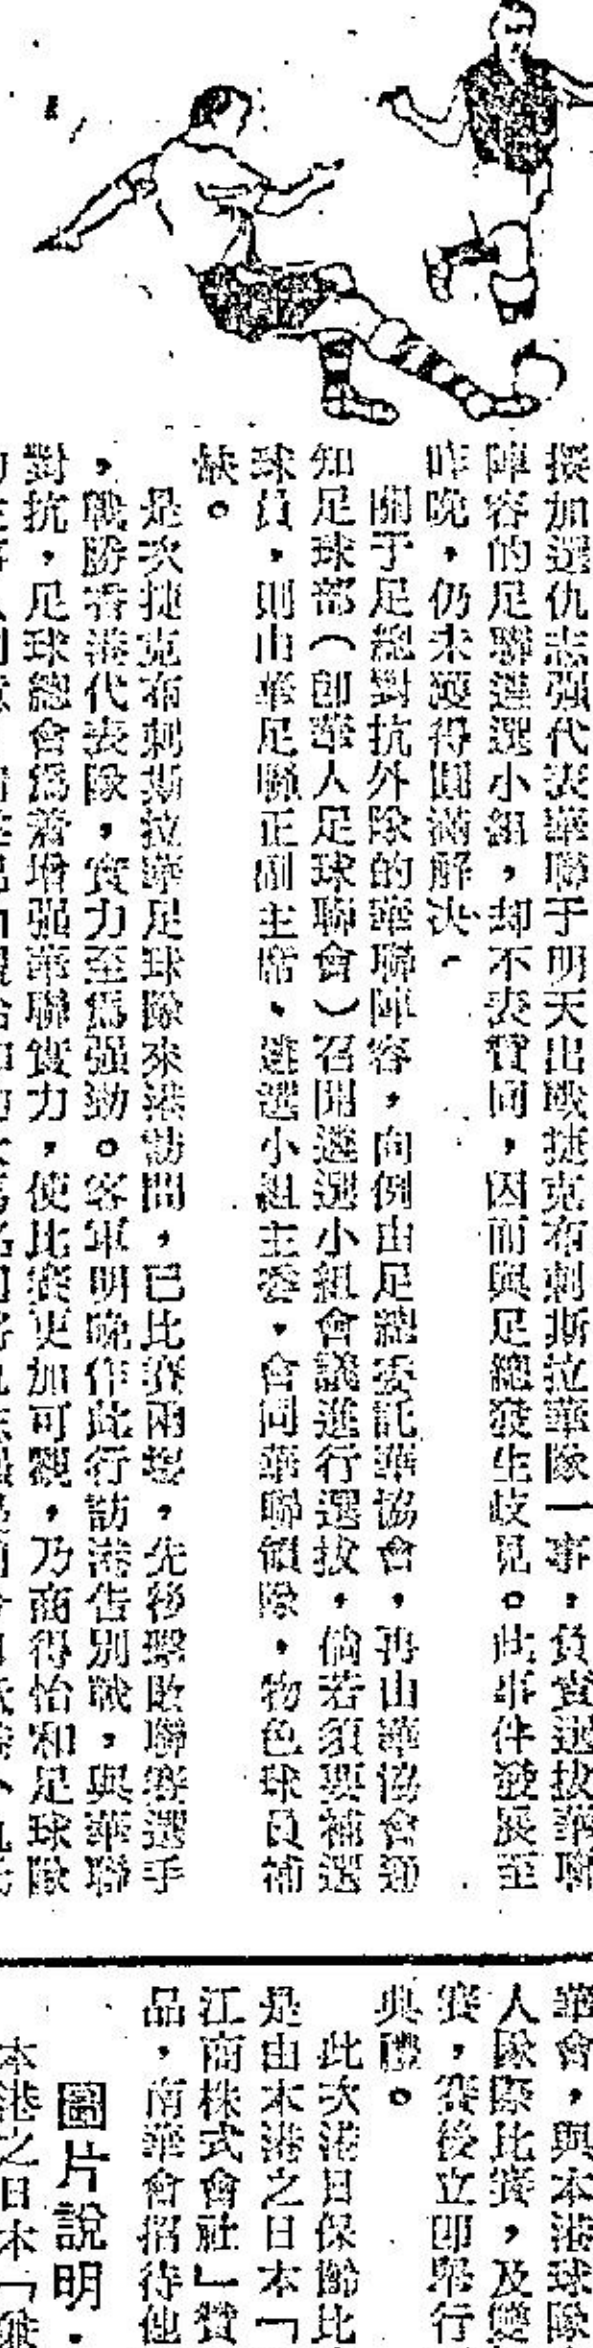 擬加選仇志强代表華聯于明天出戰捷克布剌斯拉華隊一事，負責選拔華聯
陣容的足聯遴選小組，却不表贊同，因而與足總發生歧見。此事件發展至
昨晚，仍未獲得圓滿解决。
關于足總對抗外隊的華聯陣容，向例由足總委託華協會，再由華協會通
知足球部（卽華人足球聯會）召開遴選小組會議進行選拔，倘若須要補選
球員，則由華足聯正副主席、遴選小組主委，會同華聯領隊，物色球員補
缺。
是次捷克布剌斯拉華足球隊來港訪問，已比賽兩塲，先後擊敗聯賽選手
，戰勝香港代表隊，實力至爲强勁。客軍明晚作此行訪港告別戰，與華聯
對抗，足球總會爲着增强華聯實力，使比賽更加可觀，乃商得怡和足球隊
華會，與本港球隊
人隊際比賽，及雙
賽，賽後立卽舉行
典禮。
此次港日保齡比
是由本港之日本「
江商株式會社」贊
品，南華會招待他
圖片說明
本港之日本「